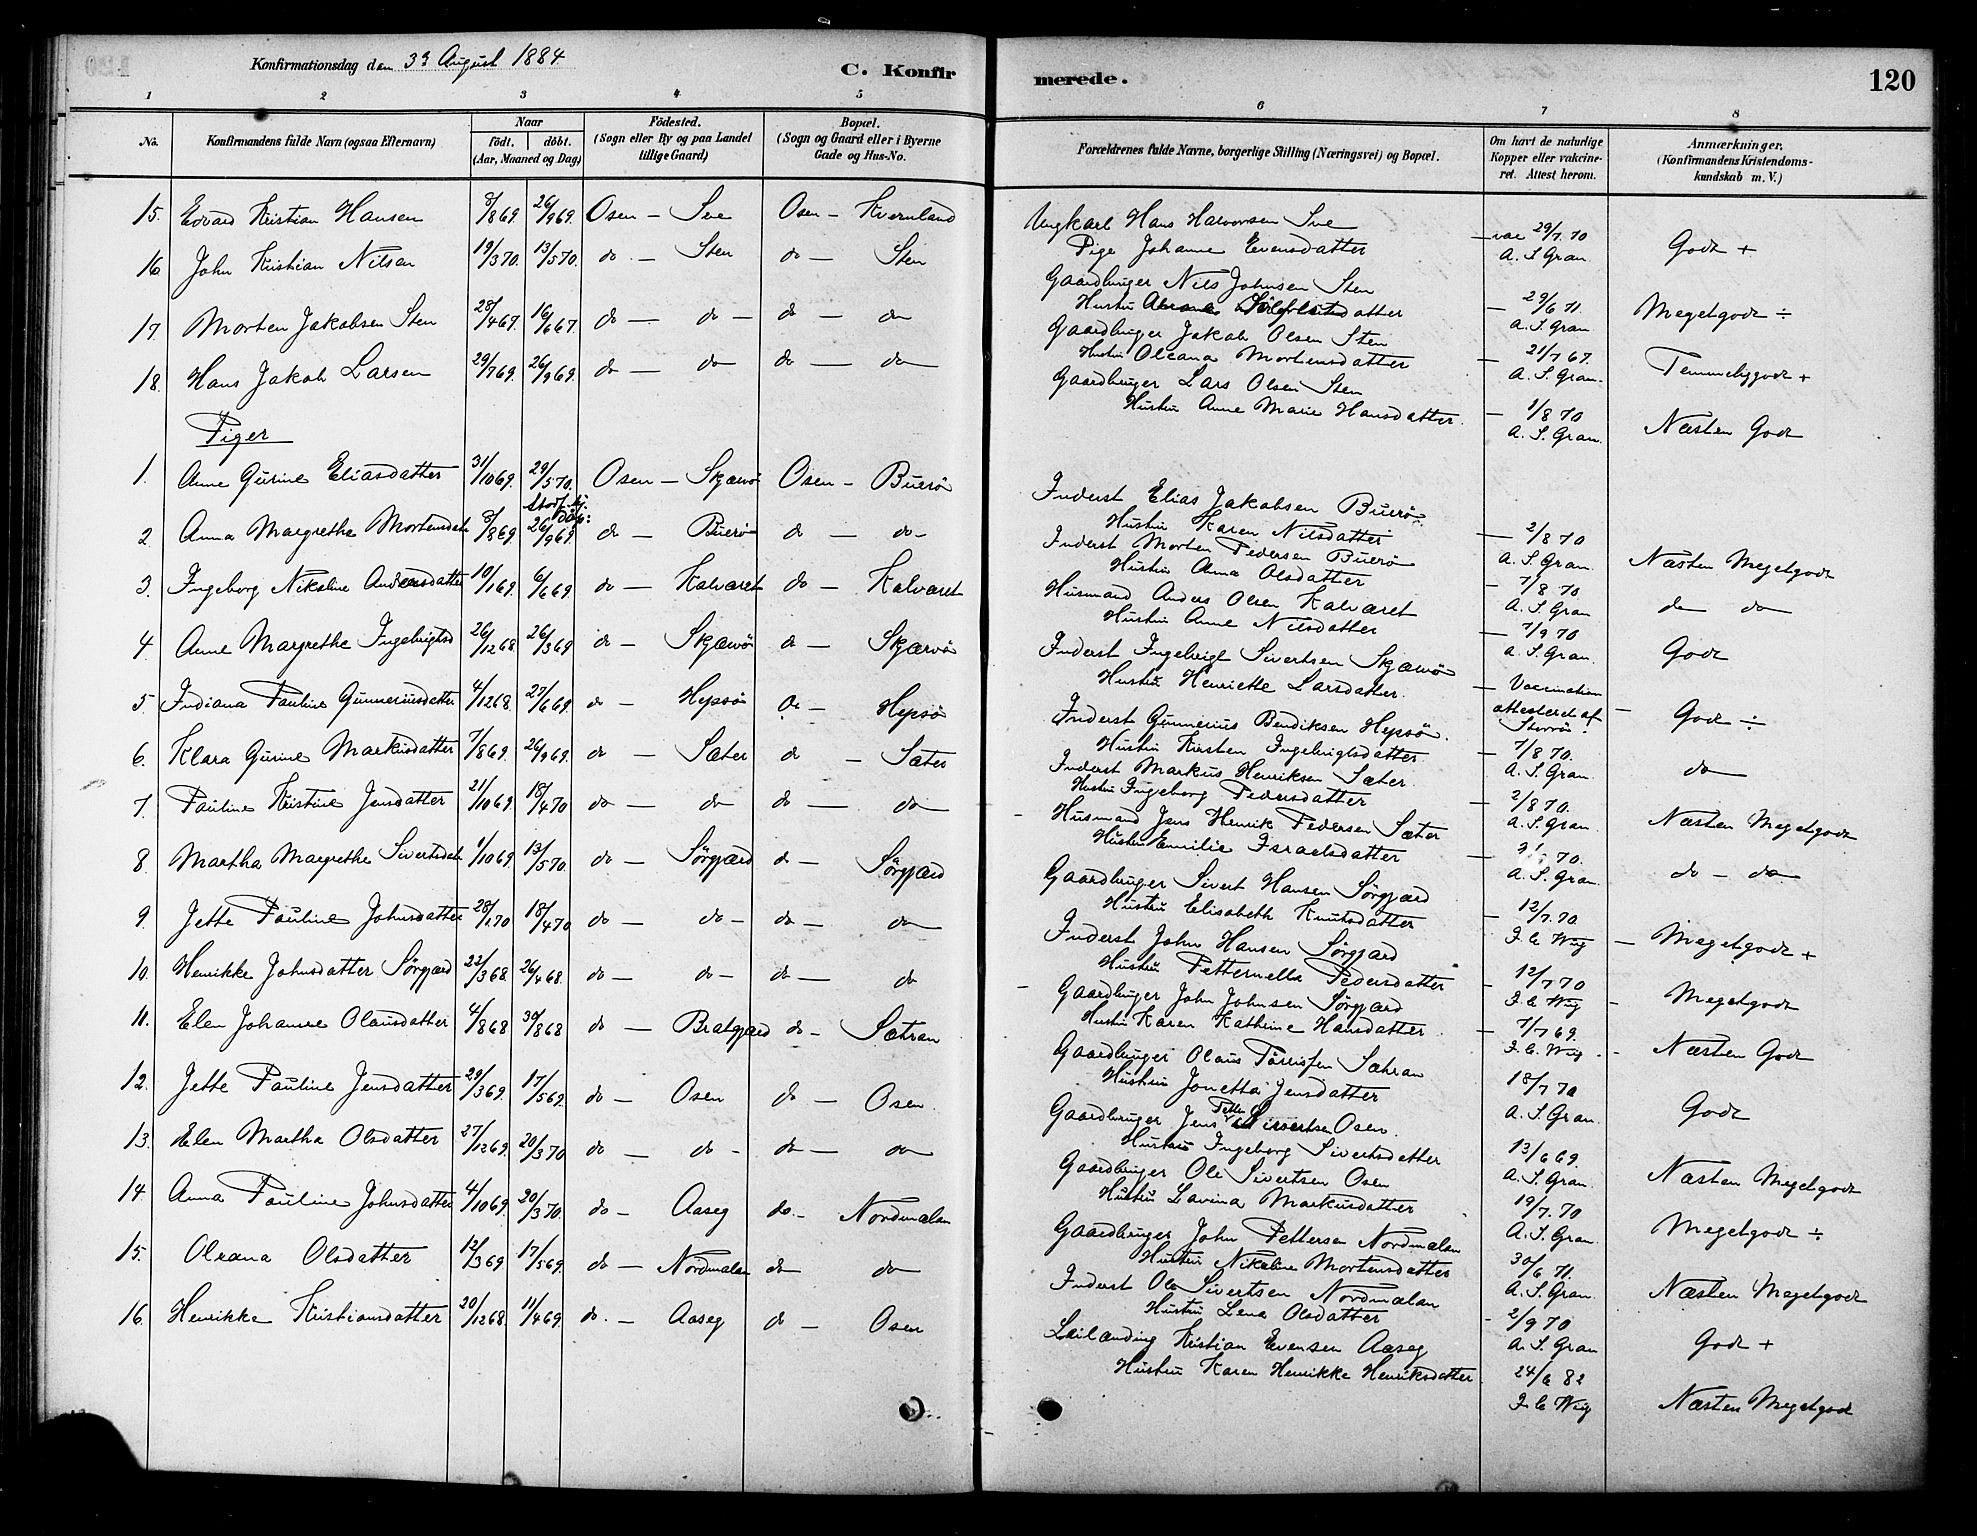 Konfirmationsdag den 3d August 1884
C. Konfir
merede.
120
1 2 3 4 5 6 7 8
No.
Konfirmandens fulde Navn (ogsaa Efternavn)
Naar
födt. döbt.
(Aar, Maaned og Dag)
Födested.
(Sogn eller By og paa Landet
tillige Gaard)
Bopæl.
(Sogn og Gaard eller i Byerne
Gade og Hus-No.
Forældrenes fulde Navne, borgerlige Stilling (Næringsvei) og Bopæl.
Om havt de naturlige
Kopper eller vakcine-
ret. Attest herom.
Anmærkninger.
(Konfirmandens Kristendoms-
kundskab m. V.)
15. Edvard Kristian Hansen 8/869. 26/969. Osen – Sve Osen – Kvernland
Ungkarl Hans Halvorsen Sve
Pige Johanne Evensdatter – vac 29/7.70 A. S. Gran. Godt +
16. John Kristian Nilsen 19/370. 13/570. do – Sten do – Sten
Gaardbruger Nils Johnsen Sten
Hustru datter – 29/6 71. A. S. Gran Megetgodt ÷
17. Morten Jakobsen Sten 28/467. 16/667. do – do – do – do
Gaardbruger Jakob Olsen Sten
Hustru Oleana Mortensdatter – 21/7 67. A. S. Gran. Temmeliggodt +
18. Hans Jakob Larsen 29/769. 26/969. do – do do – do
Gaardbruger Lars Olsen Sten
Hustru Anne Marie Hansdatter. – 1/8 70 A. S. Gran. Næsten Godt
Piger
1. Anne Gurine Eliasdatter 31/1069. 29/570. Osen – Skjærvö Osen – Buerö
Inderst Elias Jakobsen Buerö.
Hustru Karen Nilsdatter – 2/8 70 A. S. Gran. Næsten Megetgodt
2. Anna Margrethe Mortensdat 8/869. 26/969. do – Buerö do – do –
Inderst Morten Pedersen Buerö
Hustru Anna Olsdatter – 7/8 70 A. S. Gran do do
3. Ingeborg Nikoline Andersdatter 10/169. 6/669. do – Kalværet do – Kalværet
Husmand Anders Olsen Kalværet
Hustru Anne Nilsdatter – 7/9 70 A. S. Gran. Godt
4. Anne Margrethe Ingebrigtsd 26/1268 26/369 do – Skjærvö do – Skjærvö
Inderst Ingebrigt Sivertsen Skjærvö
Hustru Henriette Larsdatter. – Vaccination attesteret af Størrö. – Godt ÷
5. Indiana Pauline Gunneriusdatter 4/1268. 27/669. do – Hepsö do – Hepsö
Inderst Gunnerius Bendiksen Hepsö.
Hustru Kirsten Ingebrigtsdatter – 7/8 70. A. S. Gran do
6. Klara Gurine Markusdatter 7/869. 26/969. do – Sæter do – Sæter
Inderst Markus Henriksen Sæter.
Hustru Ingeborg Pedersdatter – 2/8 70. A. S. Gran. Næsten Megetgodt
7. Pauline Kristine Jensdatter 21/1069. 18/470 do – do do – do
Husmand Jens Henrik Pedersen Sæter
Hustru Emilie Israelsdatter – 70. A. S. Gran do – do
8. Martha Margrethe Sivertsdat 1/1069 13/570. do – Sørgjærd do – Sørgjærd
Gaardbruger Sivert Hansen Sørgjærd
Hustru Elisabeth Knutsdatter – 12/7.70 J. C. Wiig – Megetgodt +
9. Jette Pauline Johnsdatter 28/170 18/470 do – do – do – do
Inderst John Hansen Sørgjærd
Hustru Petternella Pedersdatter – 12/7 70 J. C. Wiig – Megetgodt
10. Henrikke Johnsdatter Sørgjærd 22/368 26/468. do – do – do – do
Gaardbruger John Johnsen Sørgjærd
Hustru Karen Kathrine Hansdatter. – 7/7 69. J. C. Wiig – Næsten Godt
11. Elen Johanne Olausdatter 4/868 30/868 do – Bratgjærd do – Sætran
Gaardbruger Olaus Tørrissen Sætran
Hustru Jonetta Jensdatter 18/7 70 A. S. Gran. Godt
12. Jette Pauline Jensdatter 29/369. 17/569. do – Osen do – Osen.
Gaardbruger Jens Petter Sivertsen Osen.
Hustru Ingeborg Sivertsdatter 13/6 69. A. S. Gran. Næsten Megetgodt
13. Elen Martha Olsdatter 27/1269. 20/370 do – do – do – do
Gaardbruger Ole Sivertsen Osen
Hustru Lavina Markusdatter 19/7.70 A. S. Gran. Megetgodt ÷
14. Anna Pauline Johnsdatter 4/1069. 20/370. do – Aaseg do. – Nordmælan
Gaardbruger John Pettersen Nordmælan
Hustru Nikoline Mortensdatter 30/6 71. A. S. Gran. Næsten Megetgodt
15. Oleana Olsdatter 12/369. 17/569. do – Nordmælan do do
Inderst Ole Sivertsen Nordmælan
Hustru Lena Olsdatter – 2/9 70 A. S. Gran Godt +
16. Henrikke Kristiansdatter 20/1268. 11/469. do. – Aaseg do – Osen
Leilænding Kristian Evensen Aaseg
Hustru Karen Henrikke Henriksdatter 24/6 82 J. C. Wiig Næsten Megetgodt